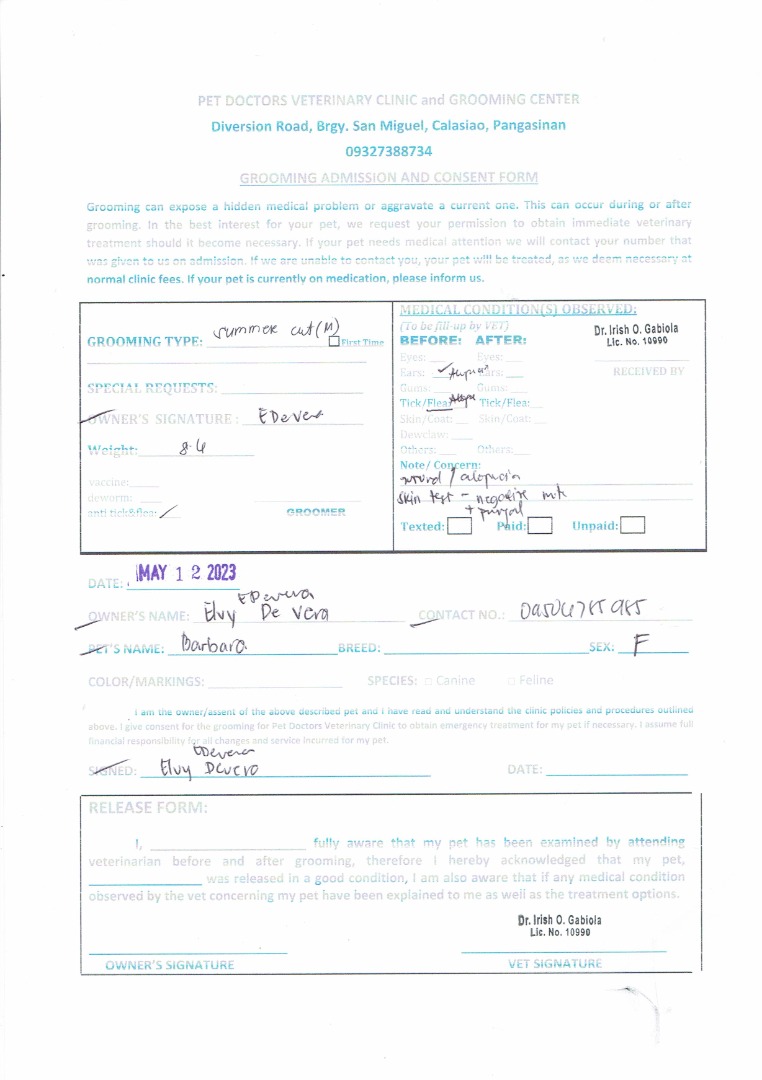 PET DOCTORS VETERINARY CLINIC and GROOMING CENTER
Diversion Road, Brgy. San Miguel, Calasiao, Pangasinan
09327388734
GROOMING ADMISSION AND CONSENT FORM
Grooming can expose a hidden medical problem or aggravate a current one. This can occur during or after
grooming. In the best interest for your pet, we request your permission to obtain immediate veterinary
treatment should it become necessary. If your pet needs medical attention we will contact your number that
was given to us on admission. If we are unable to contact you, your pet will be treated, as we deem necessary at
normal clinic fees. If your pet is currently on medication, please inform us.
GROOMING TYPE: summer cut (M)
First Time
SPECIAL REQUESTS:
OWNER'S SIGNATURE : EDevera
Weight: 8.4
vaccine:
deworm:
anti tick&flea:
GROOMER
MEDICAL CONDITION(S) OBSERVED:
(To be fill-up by VET)
BEFORE: AFTER:
Eyes: Eyes:
Ears: Ears:
Gums: Gums:
Tick/Flea: Tick/Flea:
Skin/Coat: Skin/Coat:
Dewclaw:
Others: Others:
Dr. Irish O. Gabiola
Lic. No. 10990
RECEIVED BY
Note/ Concern:
wound / alopecia
skin test - negative
Texted: Paid: Unpaid:
DATE: MAY 12 2023
EDevera
OWNER'S NAME: Elvy De Vera CONTACT NO.:
PET'S NAME: Barbara BREED: SEX: F
COLOR/MARKINGS: SPECIES: Canine Feline
I am the owner/assent of the above described pet and I have read and understand the clinic policies and procedures outlined
above. I give consent for the grooming for Pet Doctors Veterinary Clinic to obtain emergency treatment for my pet if necessary. I assume full
financial responsibility for all changes and service incurred for my pet.
EDevera
SIGNED: Elvy Devera DATE:
RELEASE FORM:
I, fully aware that my pet has been examined by attending
veterinarian before and after grooming, therefore I hereby acknowledged that my pet,
was released in a good condition, I am also aware that if any medical condition
observed by the vet concerning my pet have been explained to me as well as the treatment options.
Dr. Irish O. Gabiola
Lic. No. 10990
OWNER'S SIGNATURE VET SIGNATURE